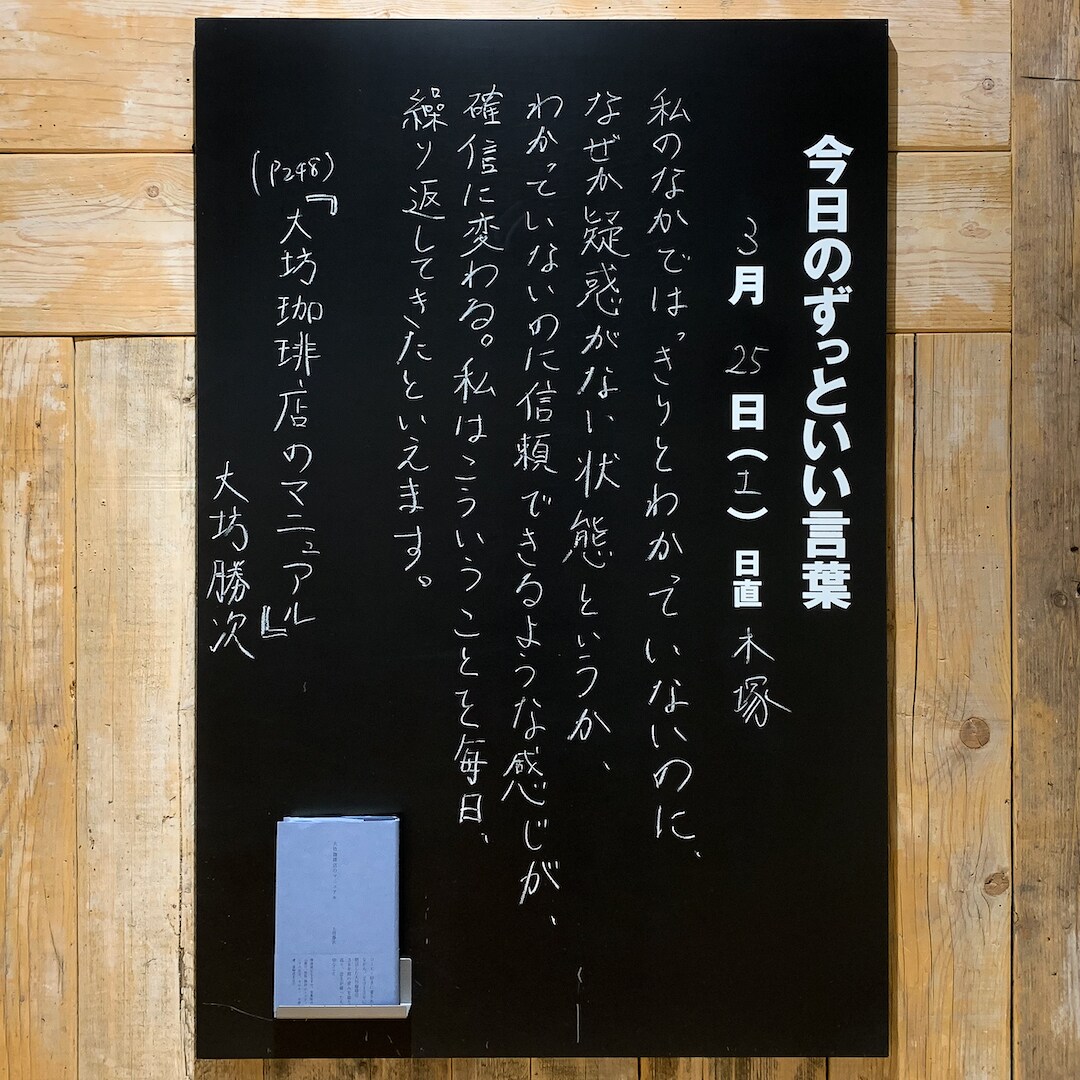 今日のずっといい言葉
3月25日(土)日直 木塚
私のなかではっきりとわかっていないのに、
なぜか疑惑がない状態というか、
わかっていないのに信頼できるような感じが、
確信に変わる。私はこういうことを毎日、
繰り返してきたといえます。
(P248)
『大坊珈琲店のマニュアル』
大坊勝次
大坊珈琲店のマニュアル
大坊勝次